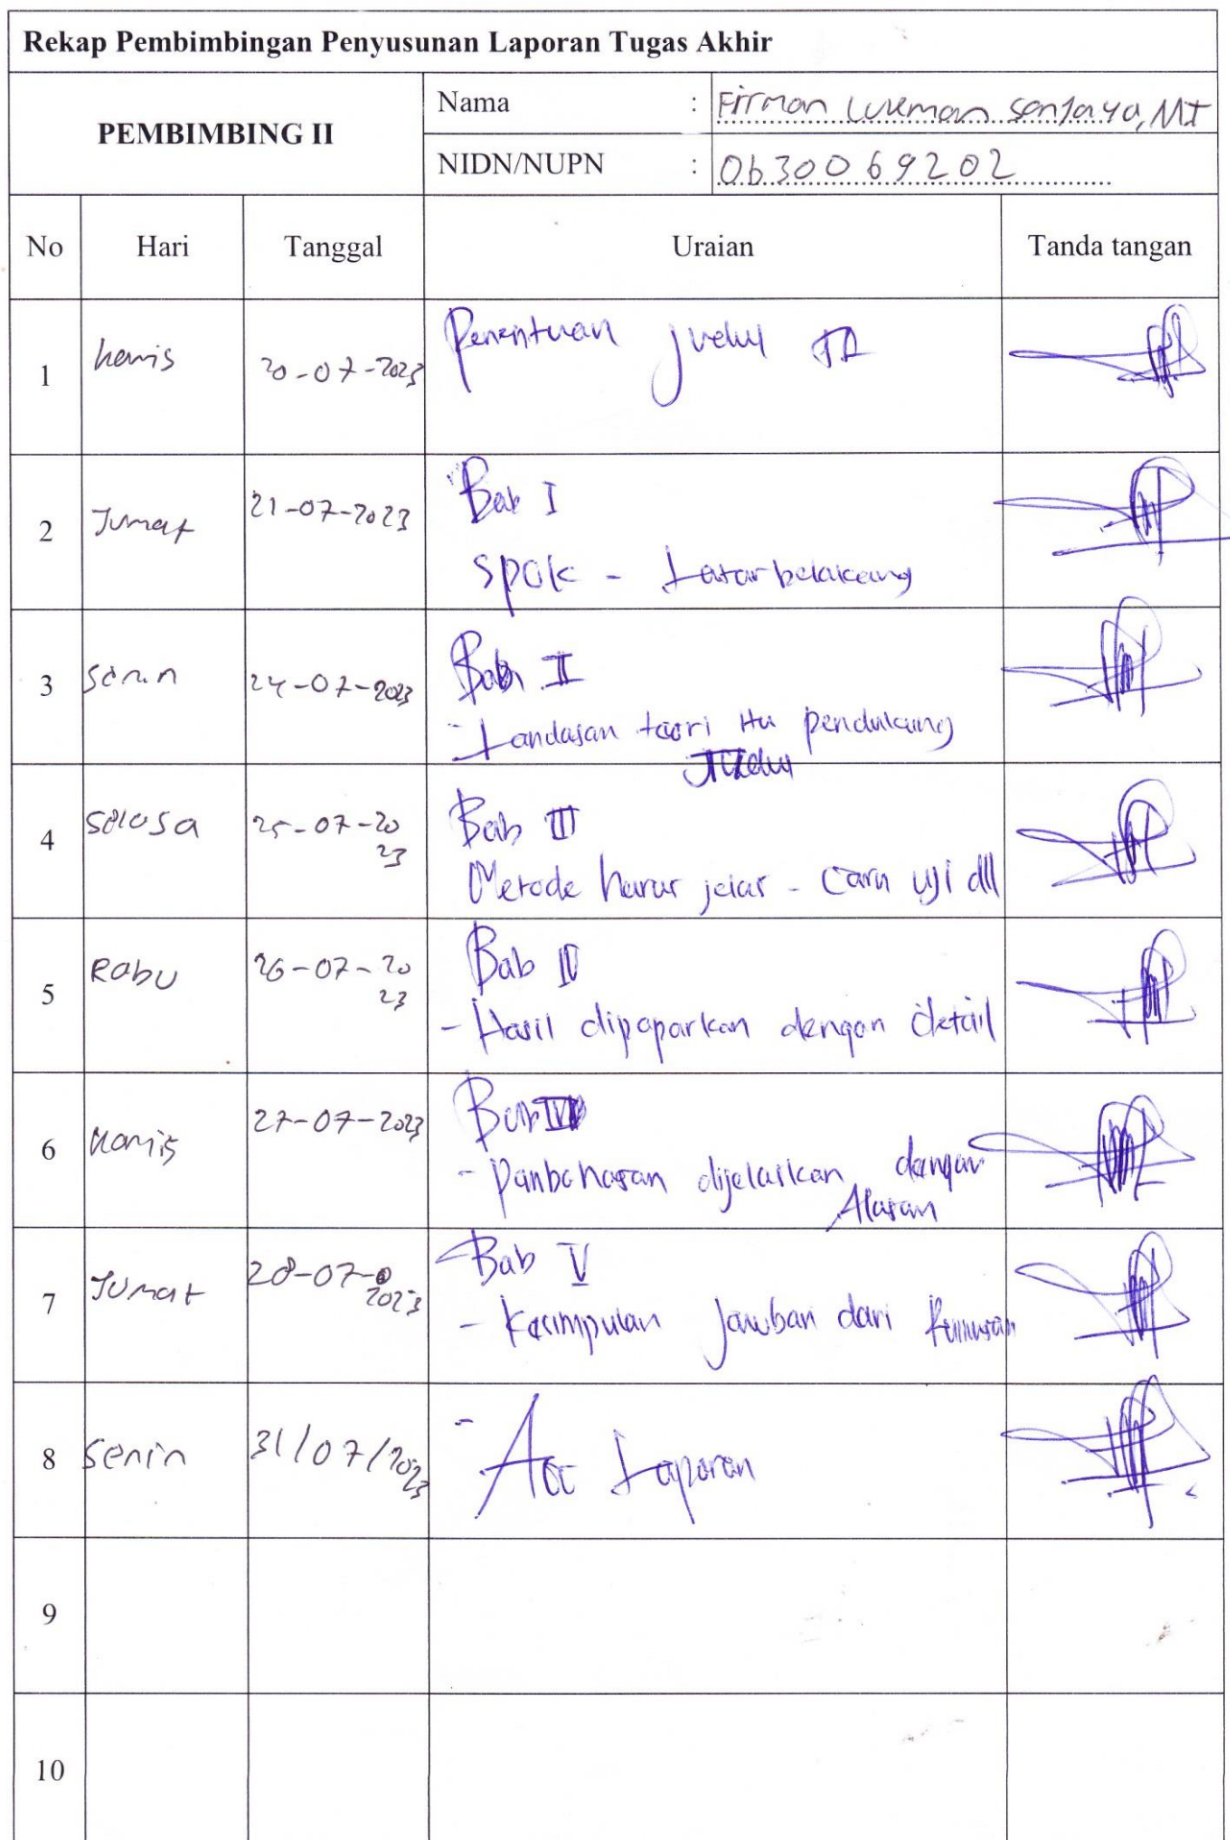 Rekap Pembimbingan Penyusunan Laporan Tugas Akhir
PEMBIMBING II
Nama : Firman Lukman Sanjaya, MT
NIDN/NUPN : 0630069202
No Hari Tanggal Uraian Tanda tangan
1 kamis 20-07-2023 Penentuan judul TA
2 Jumat 21-07-2023 Bab I
SPOK - Latar belakang
3 Senin 24-07-2023 Bab II
- Landasan teori itu pendukung
Judul
4 Selasa 25-07-20
23 Bab III
Metode harus jelas - Cara uji dll
5 Rabu 26-07-20
23 Bab IV
- Hasil dipaparkan dengan detail
6 Kamis 27-07-2023 Bab IV
- Panbahasan dijelaskan dengan
Alasan
7 Jumat 28-07-
2023 Bab V
- Kesimpulan Jawban dari Rumusan
8 Senin 31/07/2023 - Acc Laporan
9
10